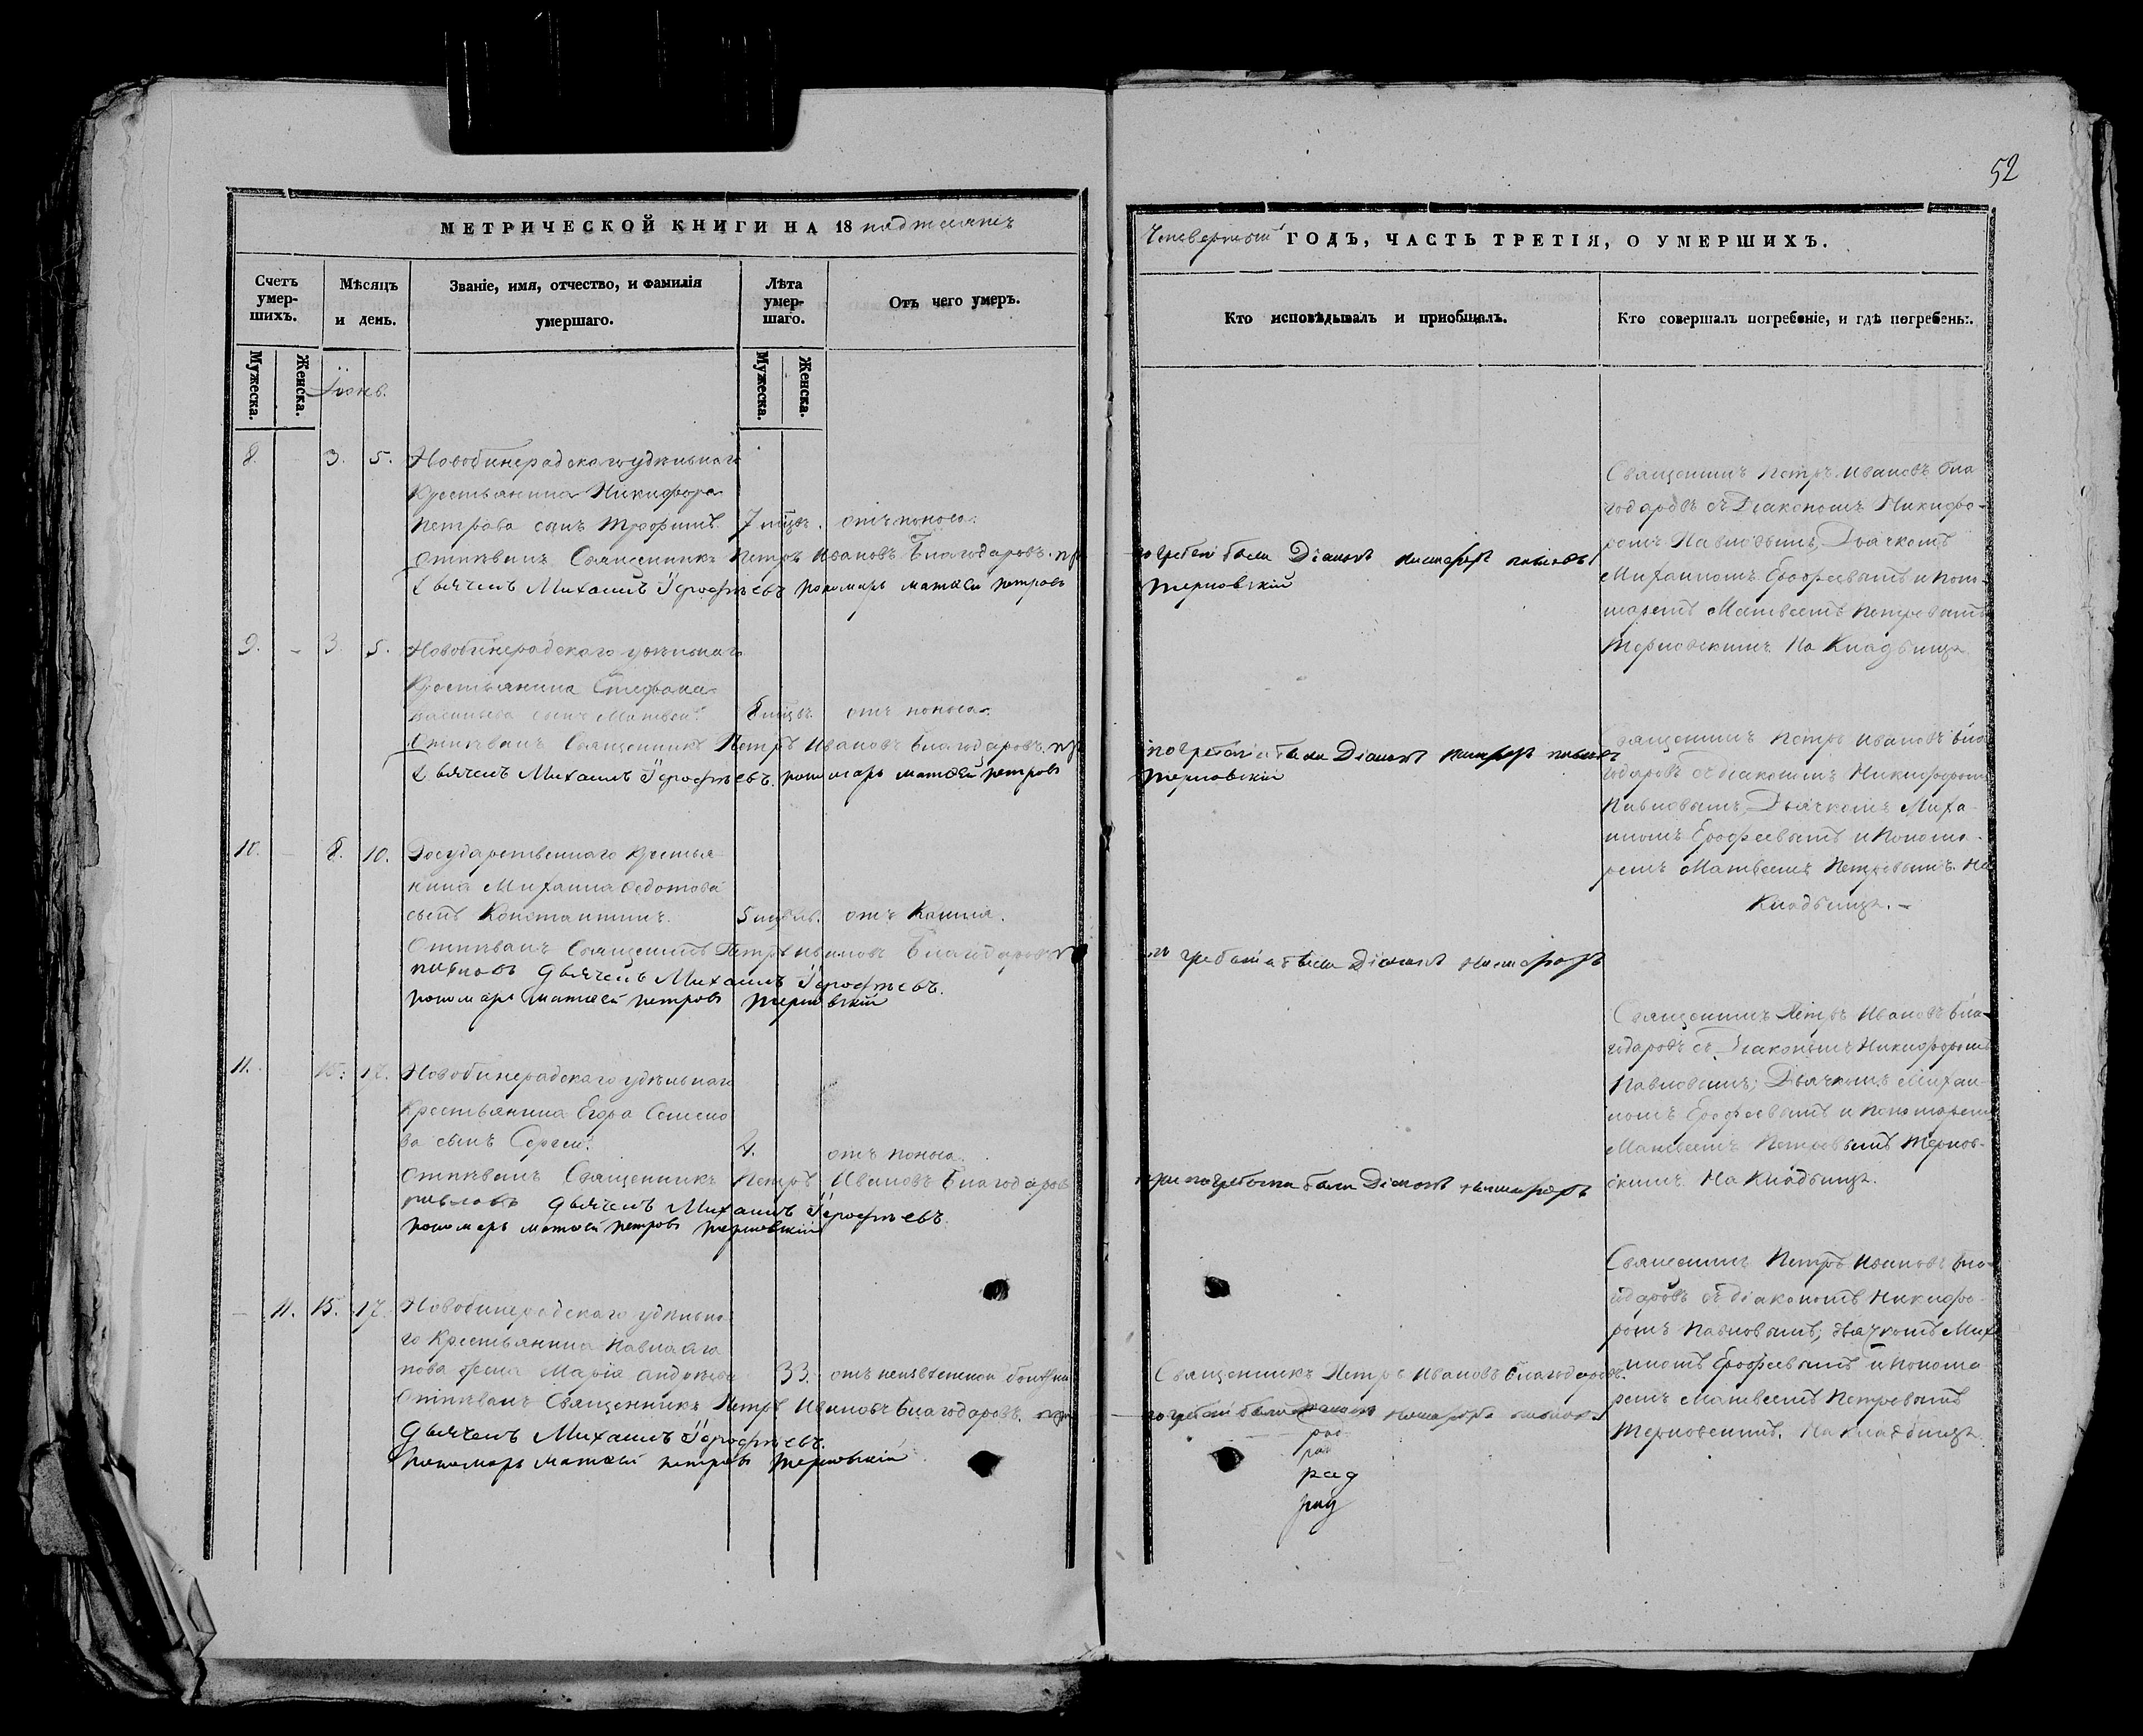 52
МЕТРИЧЕСКОЙ КНИГИ НА 18 пядтьсятъ
Четвертый ГОДЪ, ЧАСТЬ ТРЕТІЯ, О УМЕРШИХЪ.
Счетъ умер-шихъ.
Мѣсяцъ и день.
Званіе, имя, отчество, и фамилія умершаго.
Лѣта умер-шаго.
Отъ чего умеръ.
Кто исповѣдывалъ и пріобщалъ.
Кто совершалъ погребеніе, и гдѣ погребенъ:.
Мужеска.
Женска.
Мужеска.
Женска.
Іюнь.
8. 3. 5. Новобинерадскаго удѣльнаго
Крестьянина Никифора
Петрова сынъ Трофимъ. 7 мцовъ. отъ поноса.
Отпѣвалъ Священникъ Петръ Ивановъ Благодаровъ. при
Дьячекъ Михаилъ Іерофѣевъ пономарь Матвѣй Петровъ
погребеніи были Діаконъ Никифоръ Павловъ
Терновскій
Священникъ Петръ Ивановъ Бла
годаровъ съ Діакономъ Никифо-
ромъ Павловымъ, Дьячкомъ
Михаиломъ Ерофеевымъ и Поно-
маремъ Матвеемъ Петровымъ
Терновскимъ На Кладбищѣ
9. - 3. 5. Новобинерадскаго удѣльнаго
Крестьянина Стефана
Васильева сынъ Матвей. 8 мцовъ. отъ поноса.
Отпѣвалъ Священникъ Петръ Ивановъ Благодаровъ. при
Дьячекъ Михаилъ Іерофѣевъ. пономарь Матвѣй Петровъ
погребеніи были Діаконъ Никифоръ Павловъ
Терновскій
Священникъ Петръ Ивановъ Бла
годаровъ съ діакономъ Никифоромъ
Павловымъ, Дьячкомъ Миха-
иломъ Ерофеевымъ и Понома-
ремъ Матвеемъ Петровымъ. На
Кладбищѣ. -
10. - 8. 10. Государственнаго Крестья
нина Михаила Федотова
сынъ Константинъ. 5 мцовъ. отъ Кашля.
Отпѣвалъ Священникъ Петръ Ивановъ Благодаровъ
Павловъ Дьячекъ Михаилъ Іерофѣевъ.
пономарь Матвѣй Петровъ Терновскій
погребеніи были Діаконъ Никифоръ
Священникъ Петръ Ивановъ Бла-
годаровъ съ Діакономъ Никифоромъ
Павловымъ, Дьячкомъ Михаи-
ломъ Ерофеевымъ и Пономаремъ
Матвеемъ Петровымъ Тернов-
скимъ На Кладбищѣ.
11. 15. 17. Новобинерадскаго удѣльнаго
Крестьянина Егора Семено
ва сынъ Сергей. отъ поноса.
Отпѣвалъ Священникъ Петръ Ивановъ Благодаровъ
Павловъ Дьячекъ Михаилъ Іерофѣевъ.
пономарь Матвѣй Петровъ Терновскій
при погребеніи были Діаконъ Никифоръ
Священникъ Петръ Ивановъ Бла-
годаровъ съ діакономъ Никифо-
ромъ Павловымъ, дьячкомъ Миха
иломъ Ерофеевымъ и Понома
ремъ Матвеемъ Петровымъ
Терновскимъ. На Кладбищѣ
- 11. 15. 17. Новобинерадскаго удѣльна
го Крестьянина Павла Ага
пова жена Марія 33. отъ неизвестной болезни
Отпѣвалъ Священникъ Петръ Ивановъ Благодаровъ. при
Дьячекъ Михаилъ Іерофѣевъ.
Пономарь Матвѣй Петровъ Терновскій
Священникъ Петръ Ивановъ Благодаровъ.
погребеніи были Діаконъ Никифоръ Павловъ